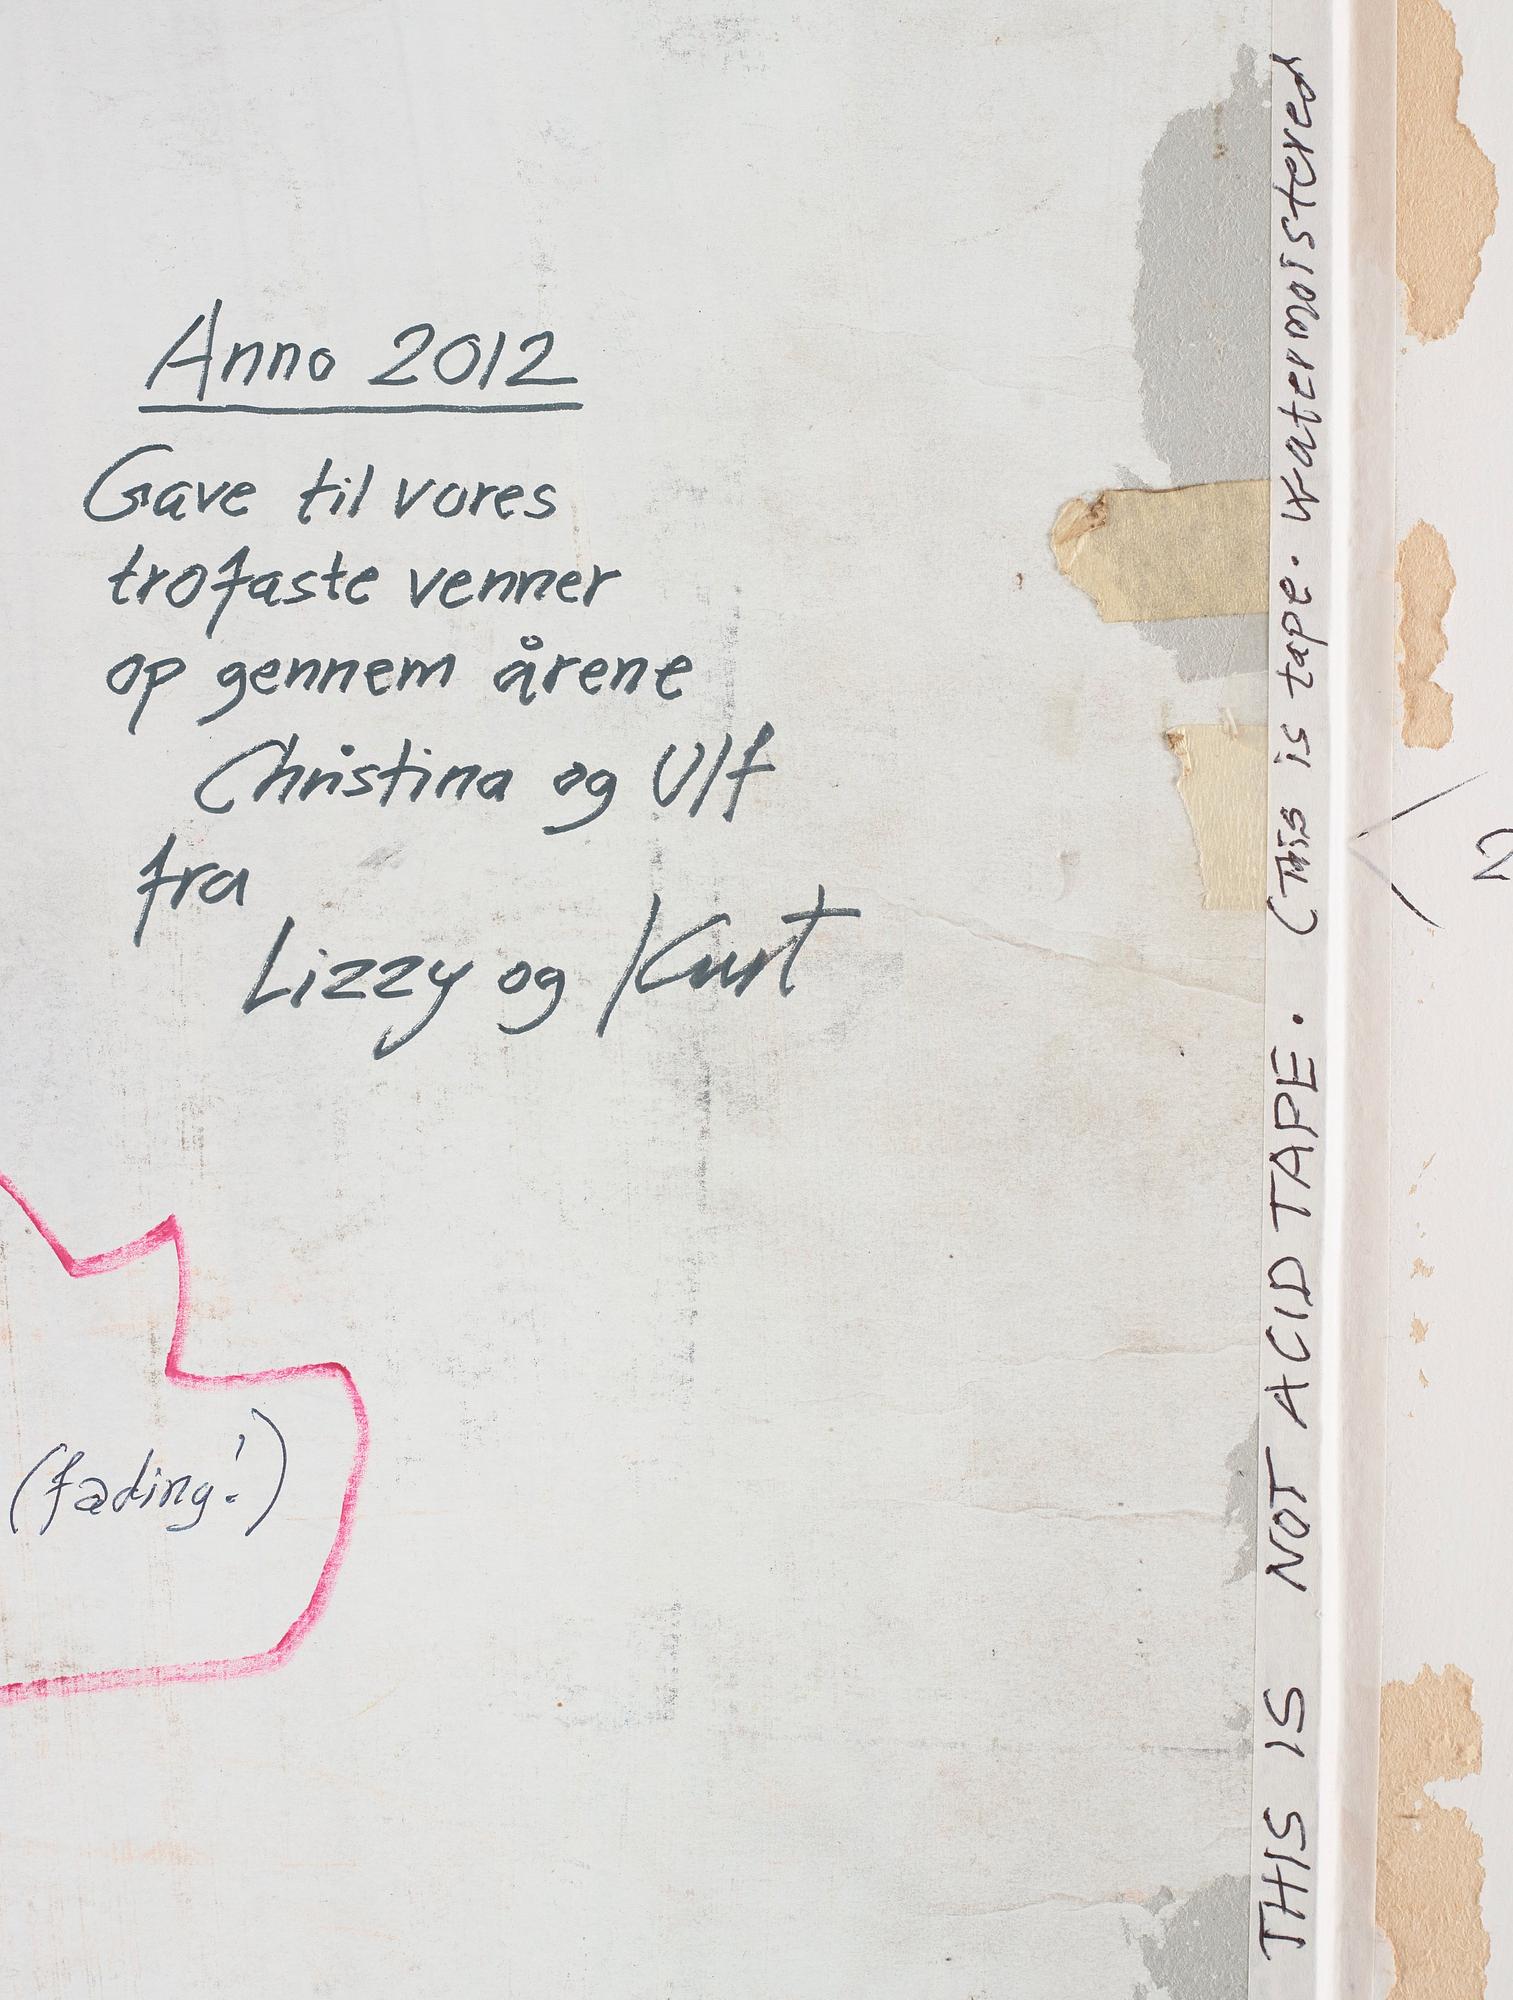 Anno 2012
Gave til vores
trofaste venner
op gennem årene
Christina og Ulf
fra
Lizzy og Kurt
(fading!)
THIS IS NOT ACID TAPE. (This is tape. watermoistered